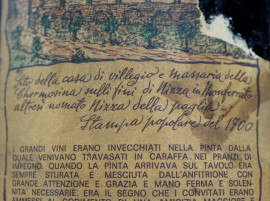 Sito della casa di villegio e massaria della
Ghermosina sulli fini di Nizza in Monferrato
altresi nomato Nizza della paglia.
Stampa popolare del 1700
I GRANDI VINI ERANO INVECCHIATI NELLA PINTA DALLA
QUALE VENIVANO TRAVASATI IN CARAFFA. NEI PRANZI DI
IMPEGNO QUANDO LA PINTA ARRIVAVA SUL TAVOLO ERA
SEMPRE STURATA E MESCIUTA DALL'ANFITRIONE CON
GRANDE ATTENZIONE E GRAZIA E MANO FERMA E SOLEN-
NITA NECESSARIE. ERA IL SEGNO CHE I CONVITATI ERANO
AMMESSI AL GODIMENTO DI UNA AMICIZIA MAGGIORE E